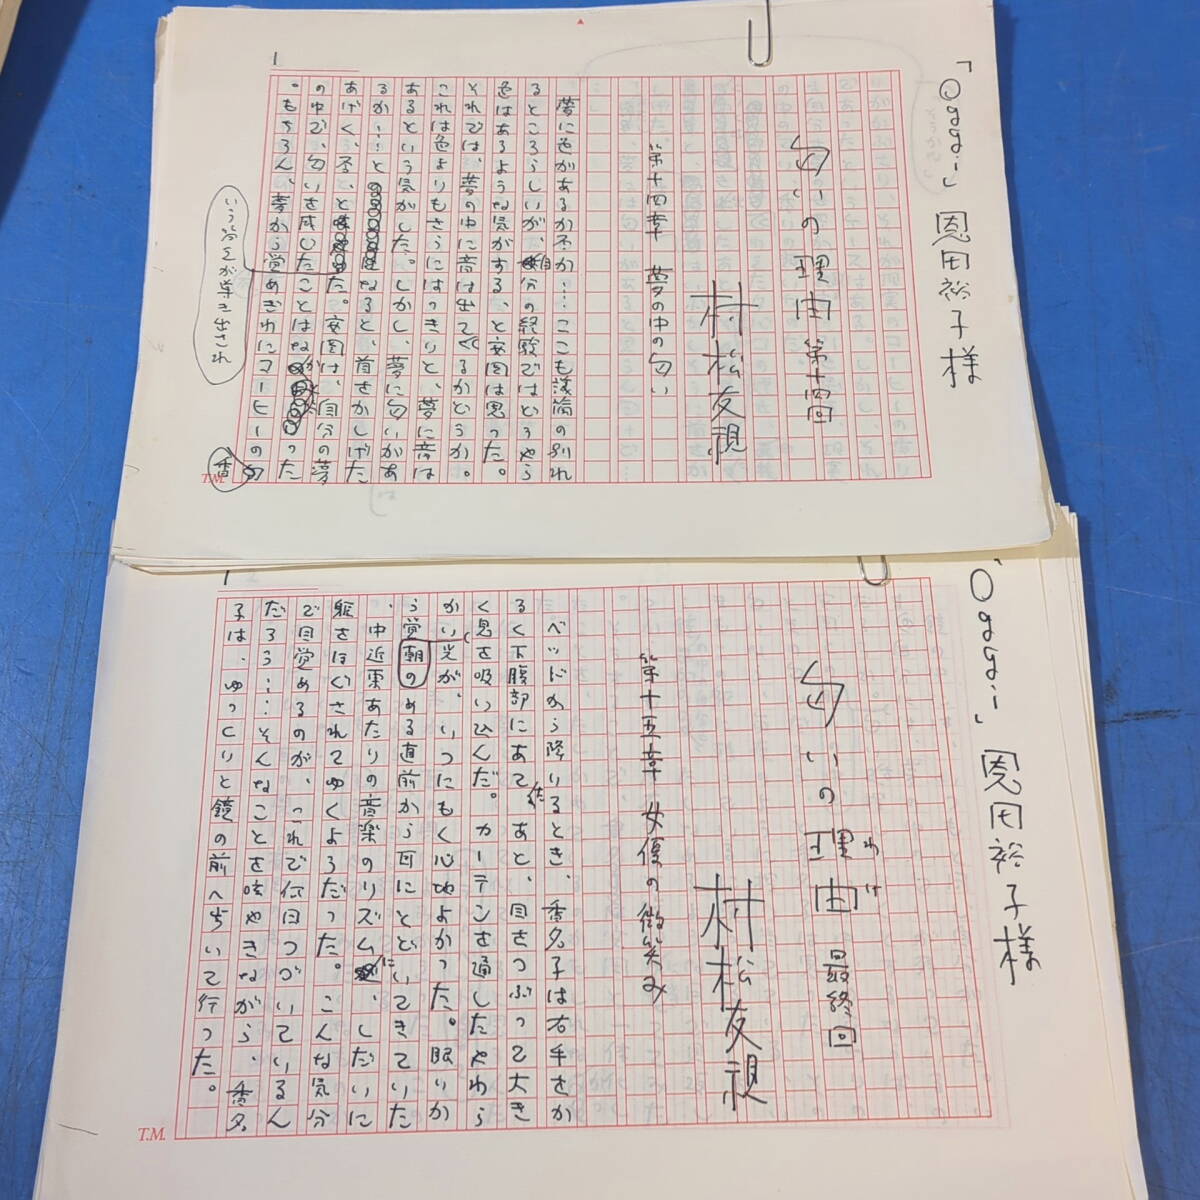 「Oggi」恩田裕子様
匂いの理由 第十四回
村松友視
第十四章 夢の中の匂い
夢に色があるか否か…ここも議論の別れ
るところらしいが、自分の経験ではどうやら
色はあるような気がする、と安岡は思った。
それでは、夢の中に音は出てくるかどうか。
これは色よりもさらにはっきりと、夢に音は
あるという気がした。しかし、夢に匂いがあ
るか…と なると、首をかしげた
あげく、否、と いう答えが導き出され た。安岡は、自分の夢
の中で、匂いを感じたことはなかった
。もちろん、夢から覚めぎわにコーヒーの香
T.M.
1
「Oggi」恩田裕子様
匂いの理由 最終回
わけ
村松友視
第十五章 女優の微笑み
ベッドから降りるとき、香名子は右手をか
るく下腹部にあてたあと、目をつぶって大き
く息を吸い込んだ。カーテンを通したやわら
かい光が、いつにもく心地よかった。眠りか
ら覚める直前から耳にとどいてきていた
朝の
、中近東あたりの音楽のリズムに、しだいに
躯をほぐされてゆくようだった。こんな気分
で目覚めるのが、これで何日つづいている
だろう…そんなことを呟やきながら、香名
子は、ゆっくりと鏡の前へ歩いて行った。
T.M.
1